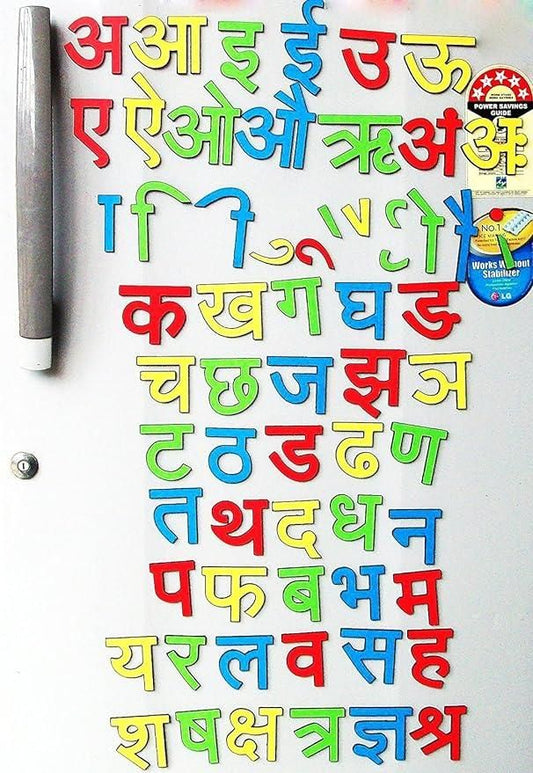 अ आ इ ई उ ऊ
ए ऐ ओ औ ऋ अं अः
POWER SAVINGS
GUIDE
ा ि ी ो
NO.1
Works Without
Stabilizer
LG
क ख ग घ ङ
च छ ज झ ञ
ट ठ ड ढ ण
त थ द ध न
प फ ब भ म
य र ल व स ह
श ष क्ष त्र ज्ञ श्र